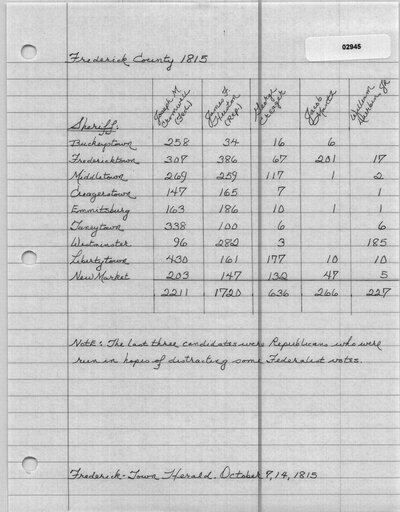 02945
Frederick County 1815
Sheriff: Joseph M. Cromwell (Fed) James F. Huston (Rep) George Creager Jacob William Durbin Jr
Buckeystown 258 34 16 6
Fredericktown 307 386 67 201 17
Middletown 269 259 117 1 2
Creagerstown 147 165 7 1
Emmitsburg 163 186 10 1 1
Taneytown 338 100 6 6
Westminster 96 282 3 185
Libertytown 430 161 177 10 10
New Market 203 147 132 47 5
2211 1720 636 266 227
Note: The last three candidates were Republicans who were
run in hopes of distracting some Federalist votes.
Frederick-Town Herald. October 7, 14, 1815